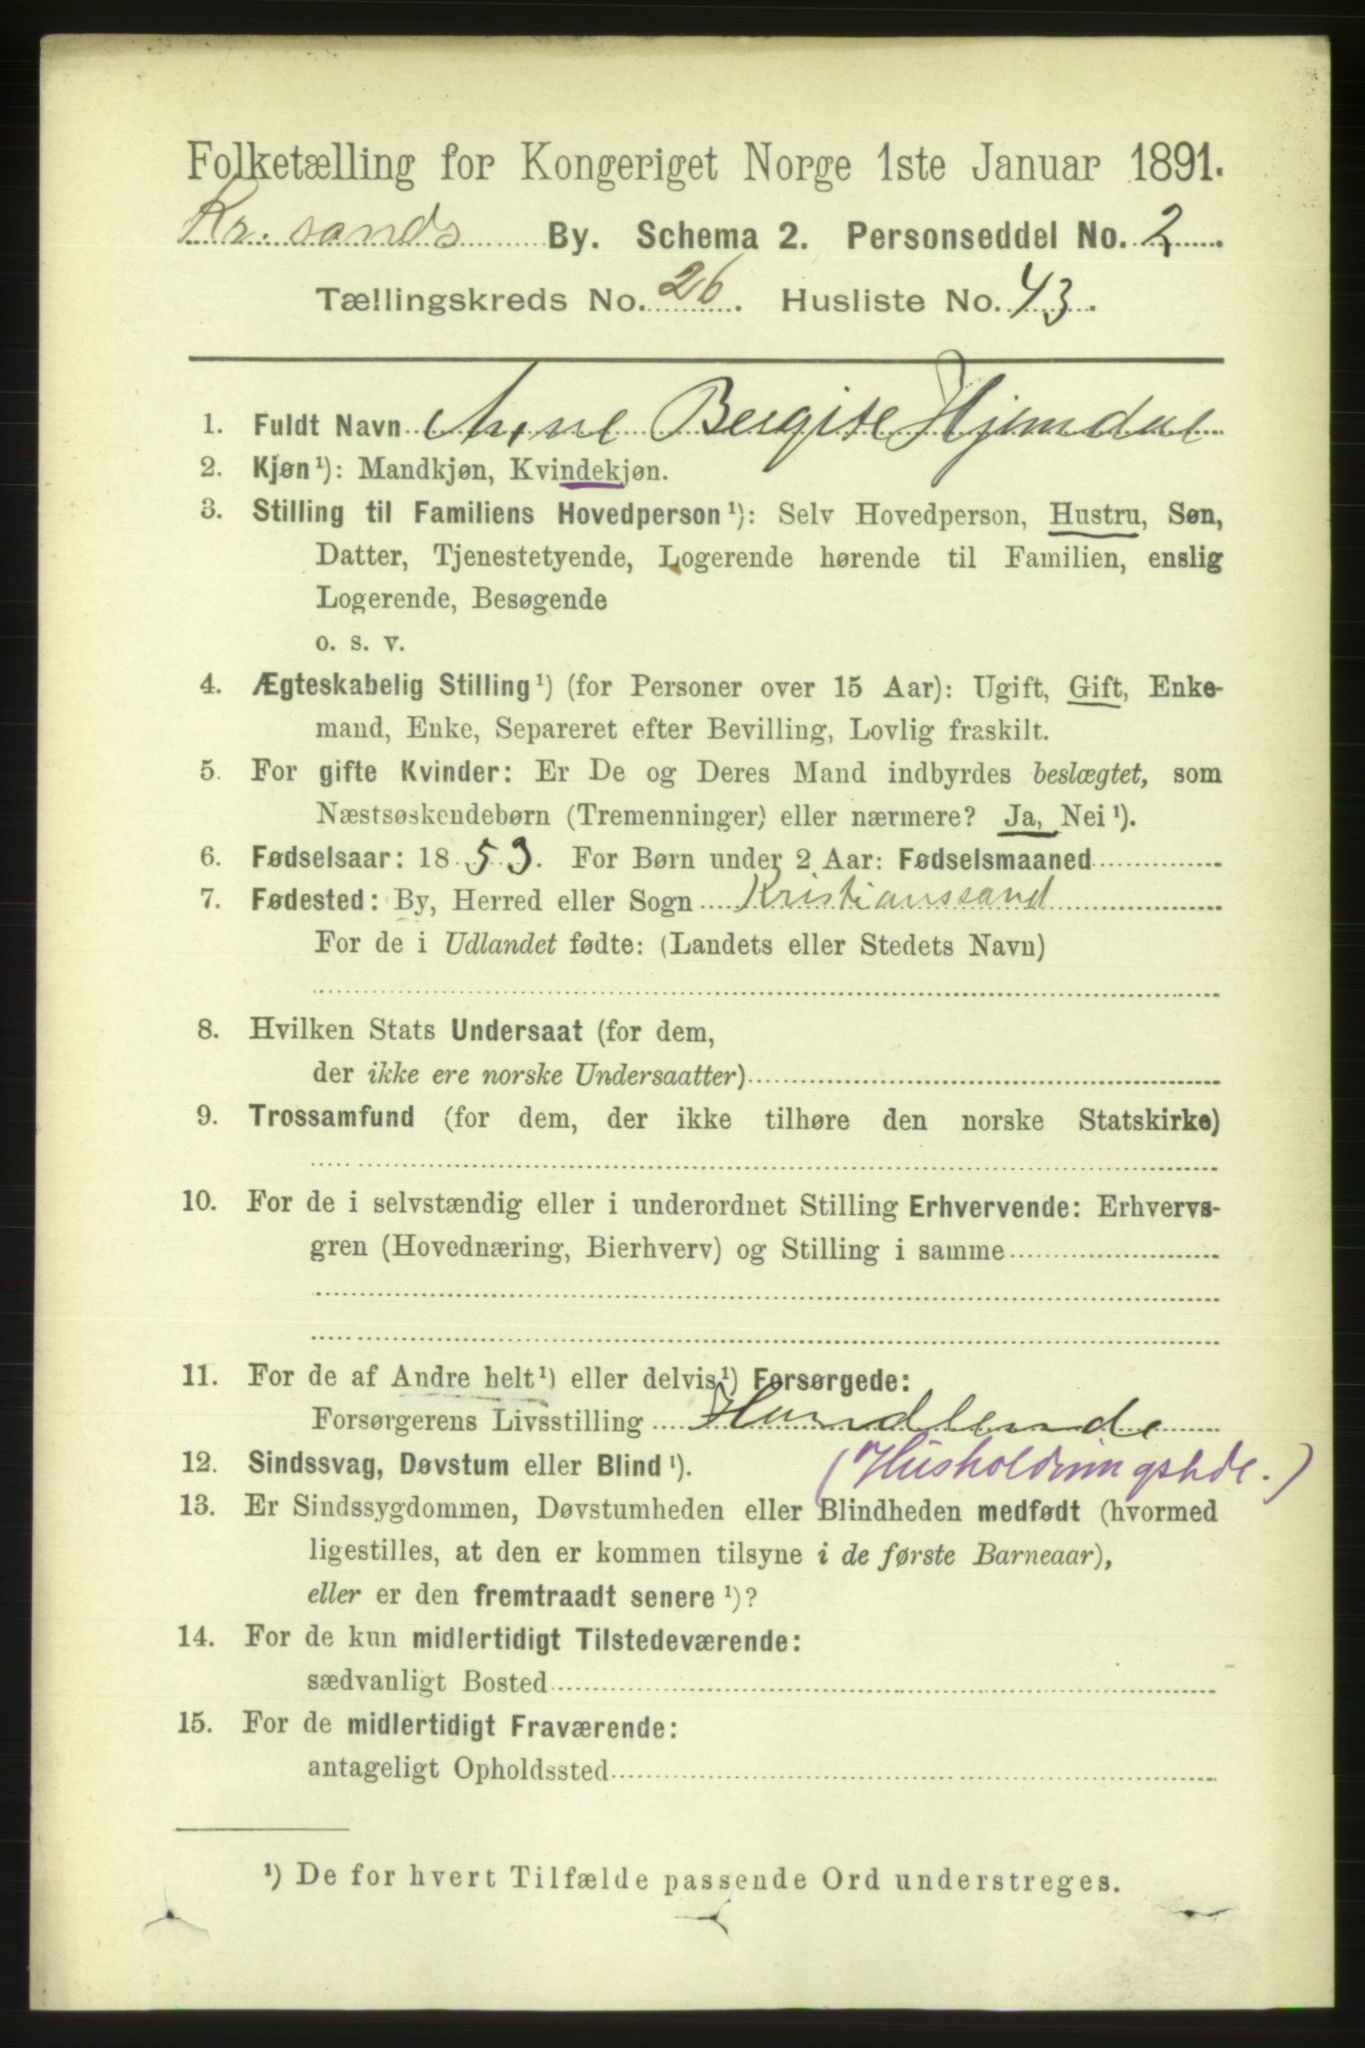 Folketælling for Kongeriget Norge 1ste Januar 1891.
Kr.sands By. Schema 2. Personseddel No. 2.
Tællingskreds No. 26. Husliste No. 43.
1. Fuldt Navn Anne Bergite Hjemdal
2. Kjøn ¹): Mandkjøn, Kvindekjøn.
3. Stilling til Familiens Hovedperson ¹): Selv Hovedperson, Hustru, Søn,
Datter, Tjenestetyende, Logerende hørende til Familien, enslig
Logerende, Besøgende
o. s. v.
4. Ægteskabelig Stilling ¹) (for Personer over 15 Aar): Ugift, Gift, Enke-
mand, Enke, Separeret efter Bevilling, Lovlig fraskilt.
5. For gifte Kvinder: Er De og Deres Mand indbyrdes beslægtet, som
Næstsøskendebørn (Tremenninger) eller nærmere? Ja, Nei ¹).
6. Fødselsaar: 1853. For Børn under 2 Aar: Fødselsmaaned
7. Fødested: By, Herred eller Sogn Kristianssand
For de i Udlandet fødte: (Landets eller Stedets Navn)
8. Hvilken Stats Undersaat (for dem,
der ikke ere norske Undersaatter)
9. Trossamfund (for dem, der ikke tilhøre den norske Statskirke)
10. For de i selvstændig eller i underordnet Stilling Erhvervende: Erhvervs-
gren (Hovednæring, Bierhverv) og Stilling i samme
11. For de af Andre helt ¹) eller delvis ¹) Forsørgede:
Forsørgerens Livsstilling Handlende
12. Sindssvag, Døvstum eller Blind ¹). (Husholdningshdl.)
13. Er Sindssygdommen, Døvstumheden eller Blindheden medfødt (hvormed
ligestilles, at den er kommen tilsyne i de første Barneaar),
eller er den fremtraadt senere ¹)?
14. For de kun midlertidigt Tilstedeværende:
sædvanligt Bosted
15. For de midlertidigt Fraværende:
antageligt Opholdssted
¹) De for hvert Tilfælde passende Ord understreges.